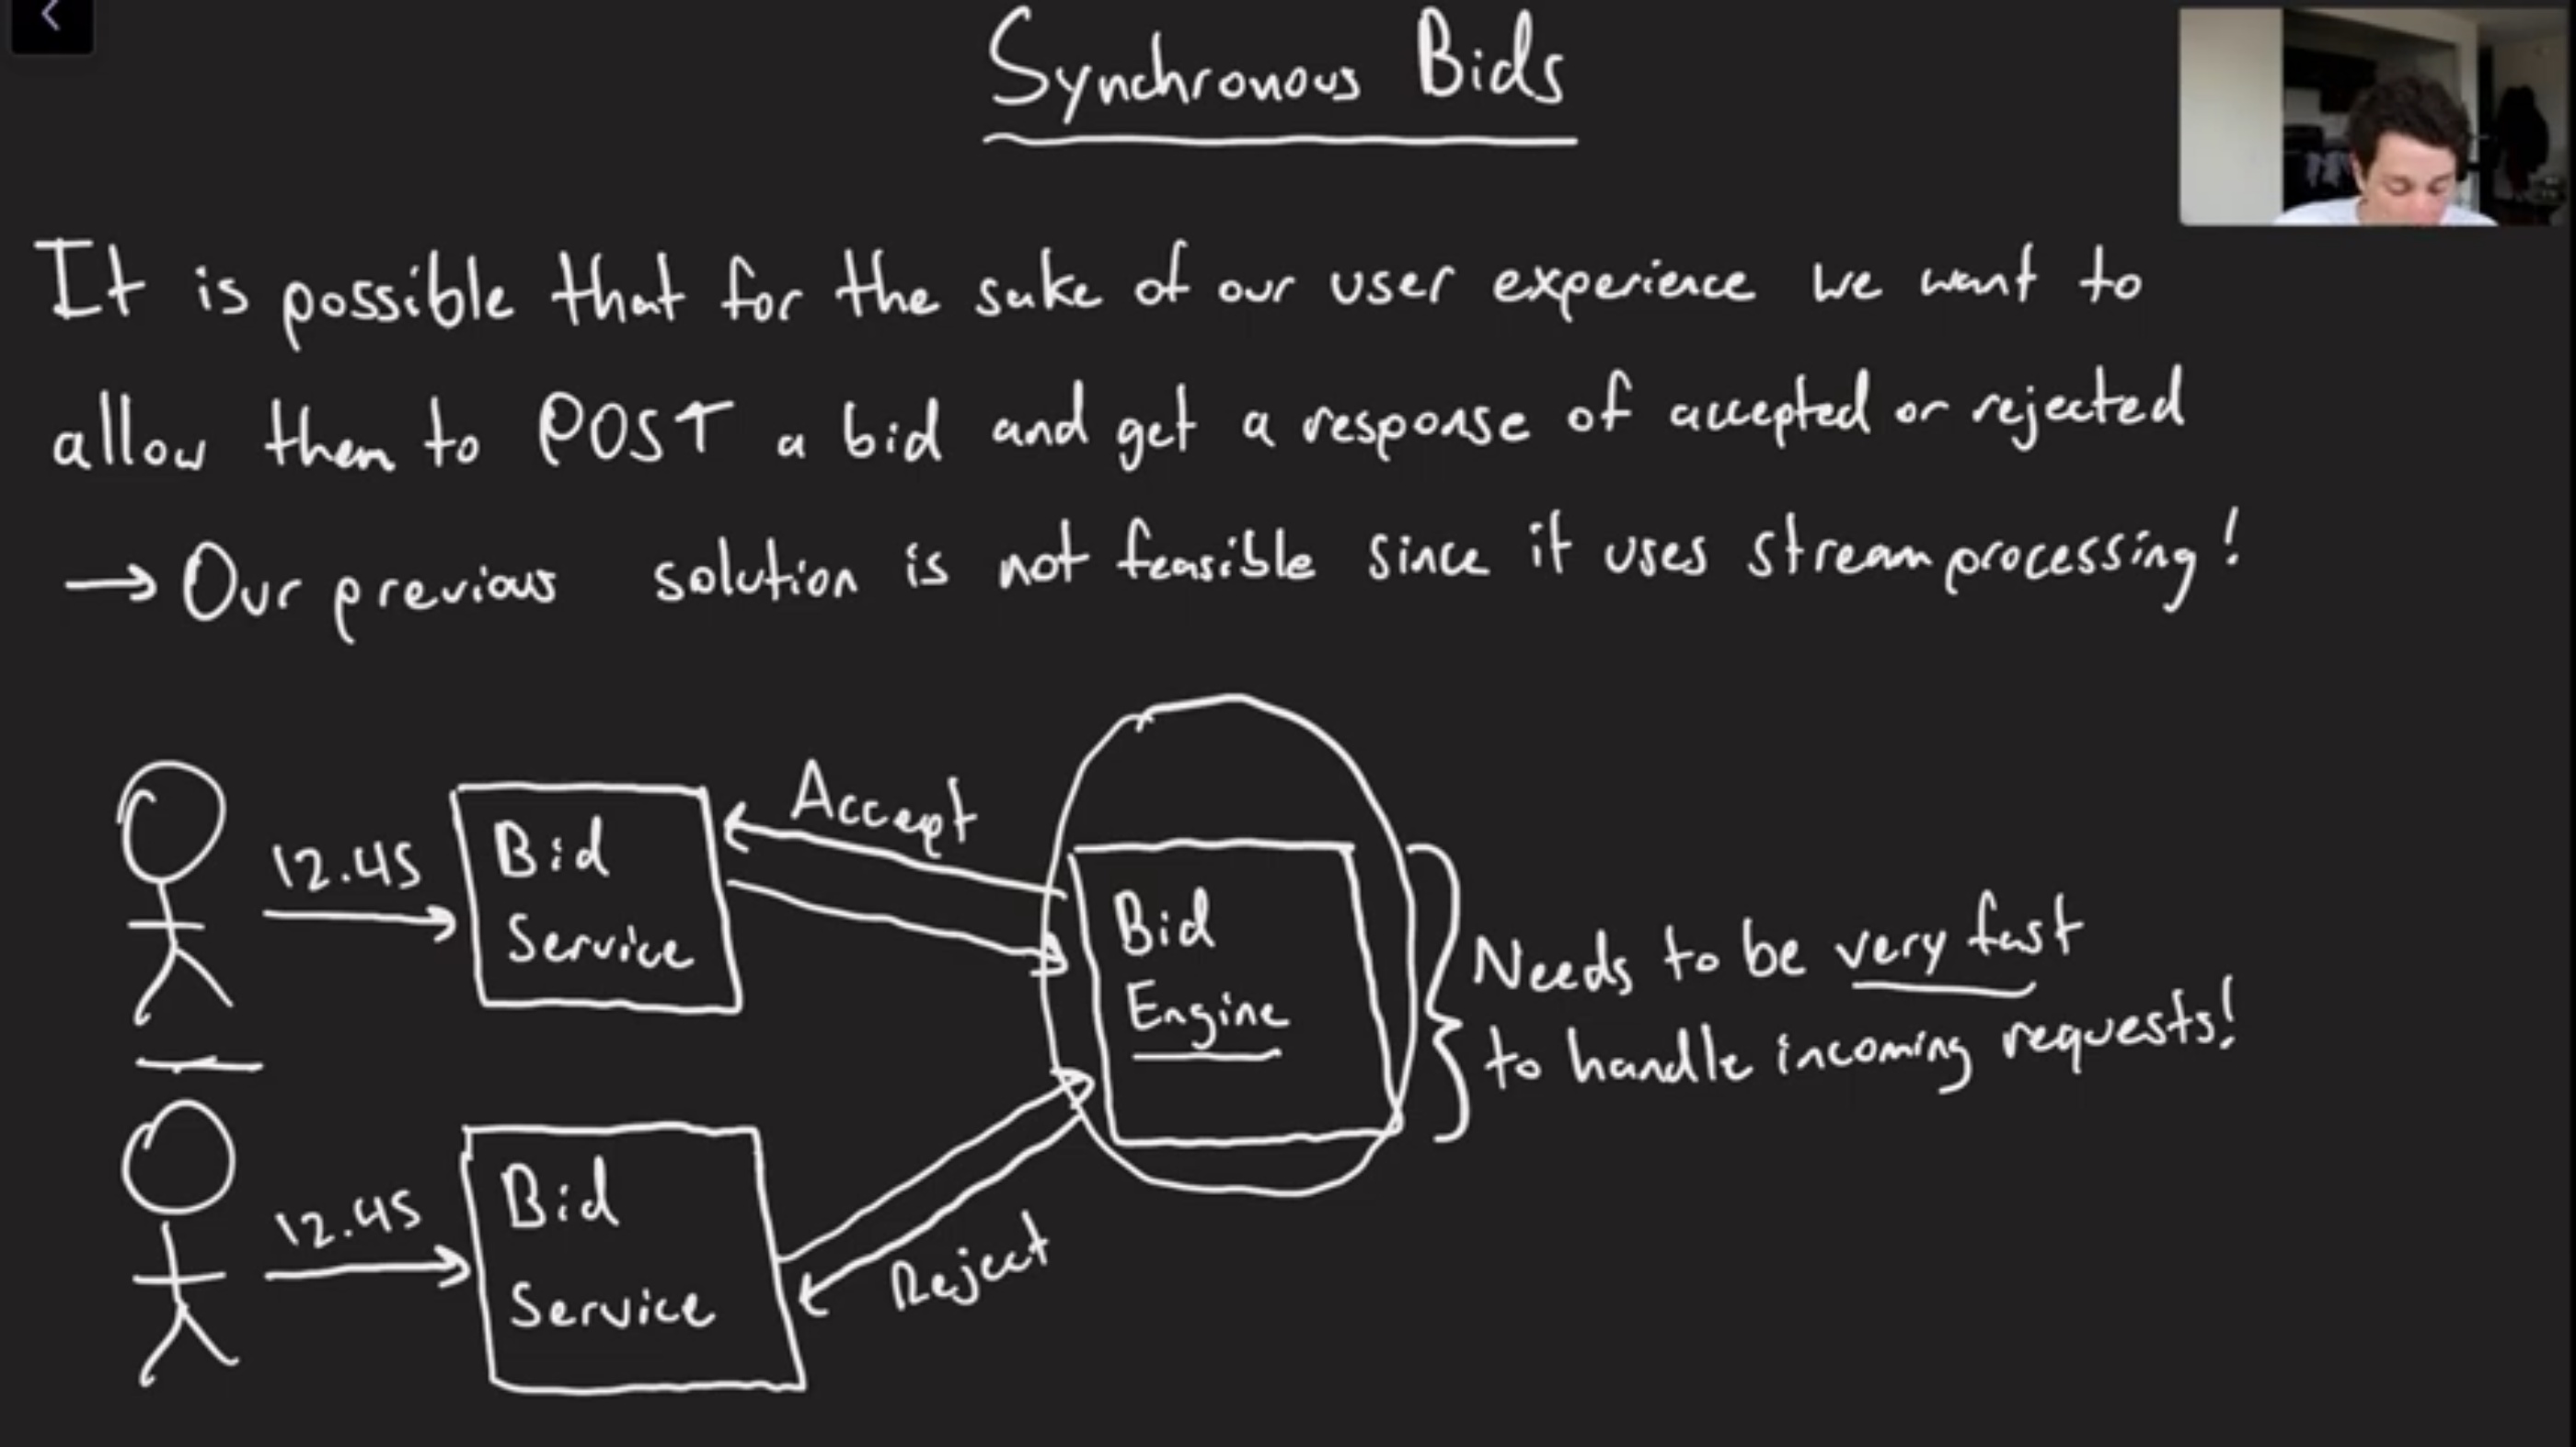 Synchronous Bids
It is possible that for the sake of our user experience we want to
allow them to POST a bid and get a response of accepted or rejected
→ Our previous solution is not feasible since it uses stream processing!
12.45
Bid
Service
Accept
Bid
Engine
Needs to be very fast
to handle incoming requests!
12.45
Bid
Service
Reject